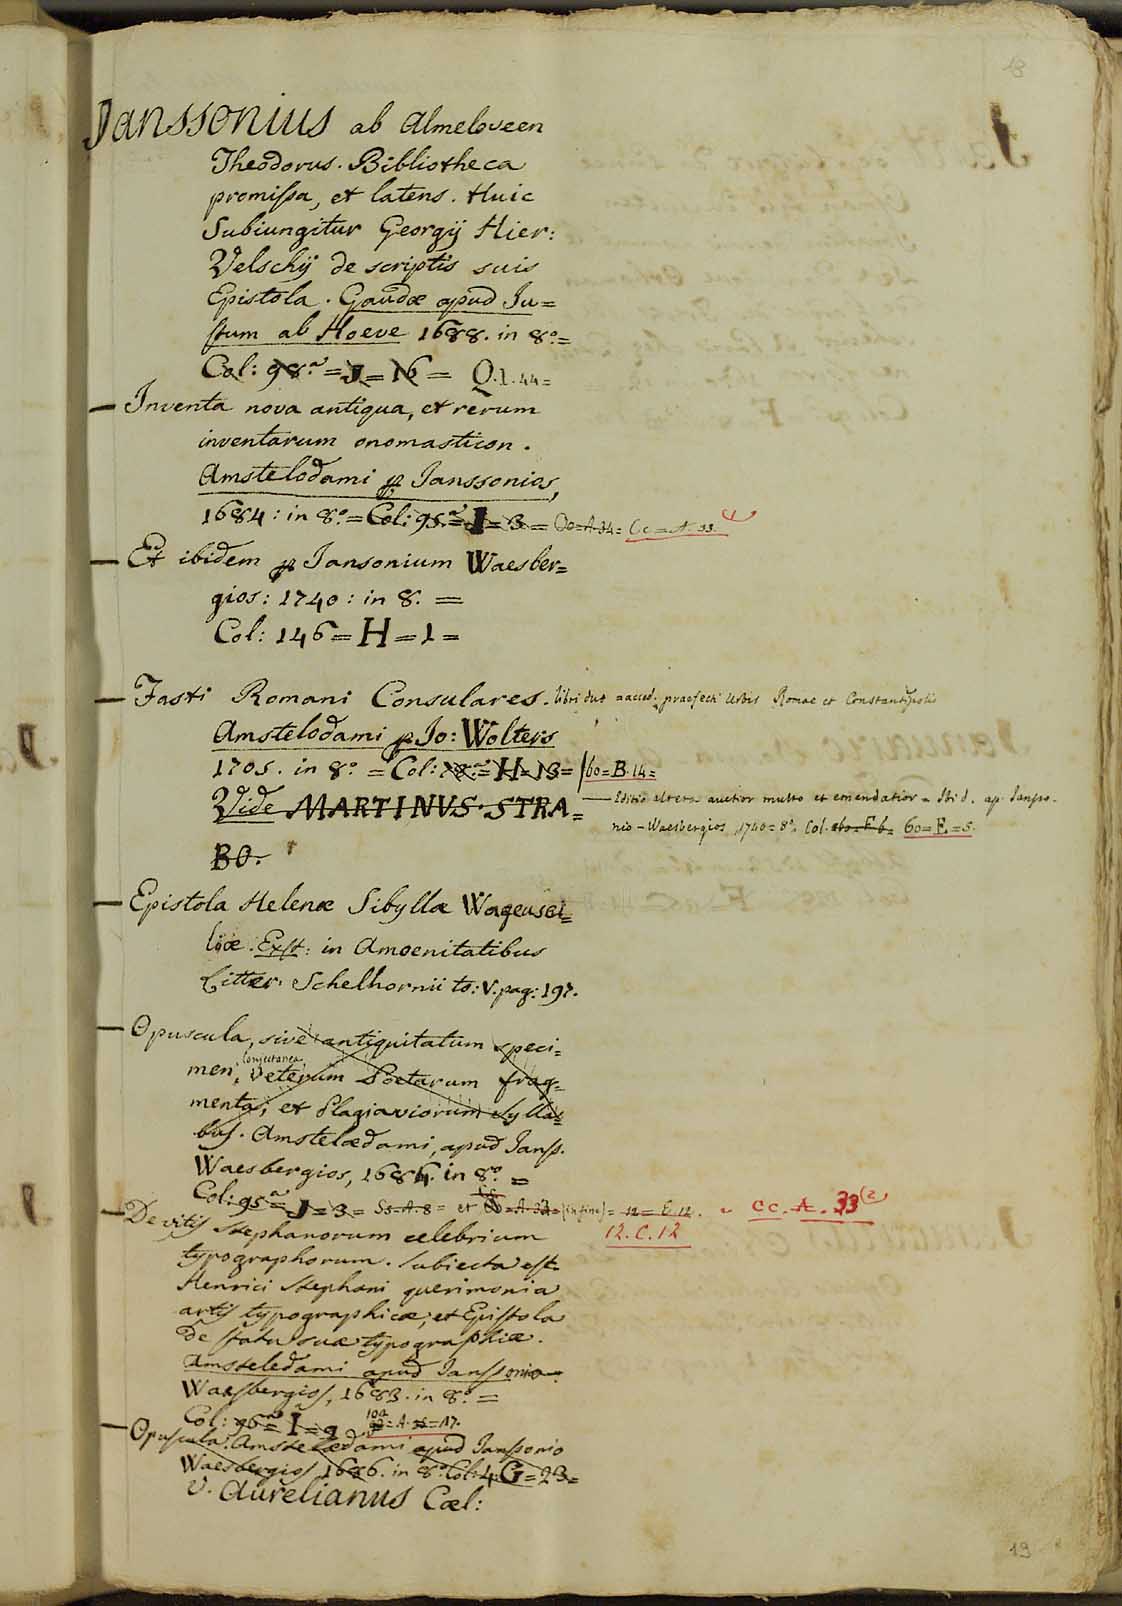 13
J
Janssonius ab Almeloveen
Theodorus. Bibliotheca
promissa, et latens. Huic
Subiungitur Georgij Hier:
Velschij de scriptis suis
Epistola. Gaudæ apud Ju=
stum ab Hoeve 1688. in 8.º=
Col: 98.ª = J = 16 = Q.1.44=
— Inventa nova antiqua, et rerum
inventarum onomasticon.
Amstelodami p Janssonios,
1684: in 8.º = Col: 95.ª = J = 3 = Oo=A.34= Cc=A.33. (1
— Et ibidem p Jansonium Waesber=
gios: 1740: in 8. =
Col: 146 = H = 1 =
— Fasti Romani Consulares. libri duo = acced. praefecti Urbis Romae et Constantipolis
Amstelodami p Jo: Wolters
1705. in 8.º = Col: 78.ª = H = 13 = 60=B.14=
Vide MARTINUS STRA=
— Editio altera auctior multo et emendatior = Ibid. ap. Jansso-
nio-Waesbergios, 1740 = 8.º Col. 160=F.6= 60=E.=5.
BO.
— Epistola Helenæ Sibyllæ Wagensei=
liæ. Exst: in Amoenitatibus
Litter. Schelhornii to: V. pag: 197.
— Opuscula, sive antiquitatum speci=
men; conjectanea, Veterum Poetarum frag=
menta; et Plagiariorum Sylla=
bus. Amstelædami, apud Janss.
Waesbergios, 1686. in 8.º =
Col: 95.ª = J = 3 = Ss=A.8= et Oo=A.33=(in fine)= 12=E.12. = CC. A. 33 (2)
12.C.12
— De vitis Stephanorum celebrium
typographorum. Subiecta est
Henrici Stephani querimonia
artis typographicæ; et Epistola
De statu suæ typographiæ.
Amsteledami apud Janssonio-
Waesbergios, 1683. in 8.º =
Col: 96.ª = I = 9 = A. =17.
— Opuscula. Amstelædami apud Janssonio
Waesbergios 1686. in 8.º Col: 4. G = 23=
V. Aurelianus Cæl:
19